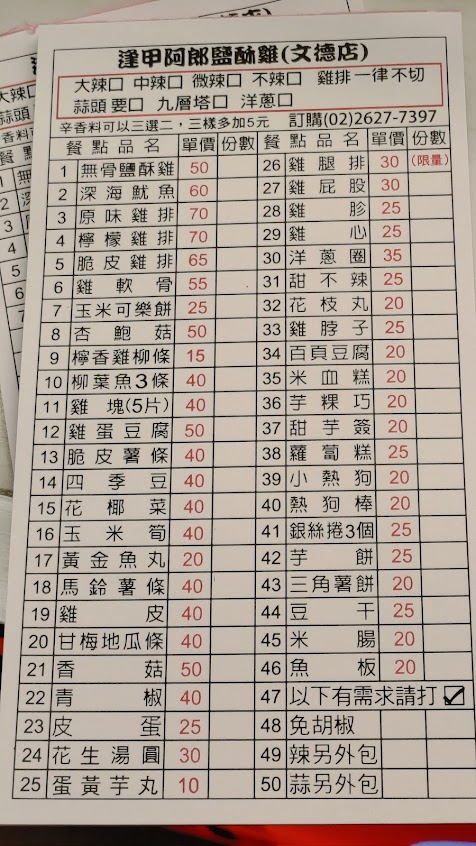 逢甲阿郎鹽酥雞(文德店)
大辣口 中辣口 微辣口 不辣口 雞排一律不切
蒜頭 要口 九層塔口 洋蔥口
辛香料可以三選二，三樣多加5元 訂購(02)2627-7397
餐 點 品 名 單價 份數 餐 點 品 名 單價 份數
1 無骨鹽酥雞 50 26 雞腿排 30 (限量)
2 深海魷魚 60 27 雞屁股 30
3 原味雞排 70 28 雞胗 25
4 檸檬雞排 70 29 雞心 25
5 脆皮雞排 65 30 洋蔥圈 35
6 雞軟骨 55 31 甜不辣 25
7 玉米可樂餅 25 32 花枝丸 20
8 杏鮑菇 50 33 雞脖子 25
9 檸香雞柳條 15 34 百頁豆腐 20
10 柳葉魚3條 40 35 米血糕 20
11 雞塊(5片) 40 36 芋粿巧 20
12 雞蛋豆腐 50 37 甜芋簽 20
13 脆皮薯條 40 38 蘿蔔糕 25
14 四季豆 40 39 小熱狗 20
15 花椰菜 40 40 熱狗棒 20
16 玉米筍 40 41 銀絲捲3個 25
17 黃金魚丸 20 42 芋餅 25
18 馬鈴薯條 40 43 三角薯餅 20
19 雞皮 40 44 豆干 25
20 甘梅地瓜條 40 45 米腸 20
21 香菇 50 46 魚板 20
22 青椒 40 47 以下有需求請打☑
23 皮蛋 25 48 免胡椒
24 花生湯圓 30 49 辣另外包
25 蛋黃芋丸 10 50 蒜另外包